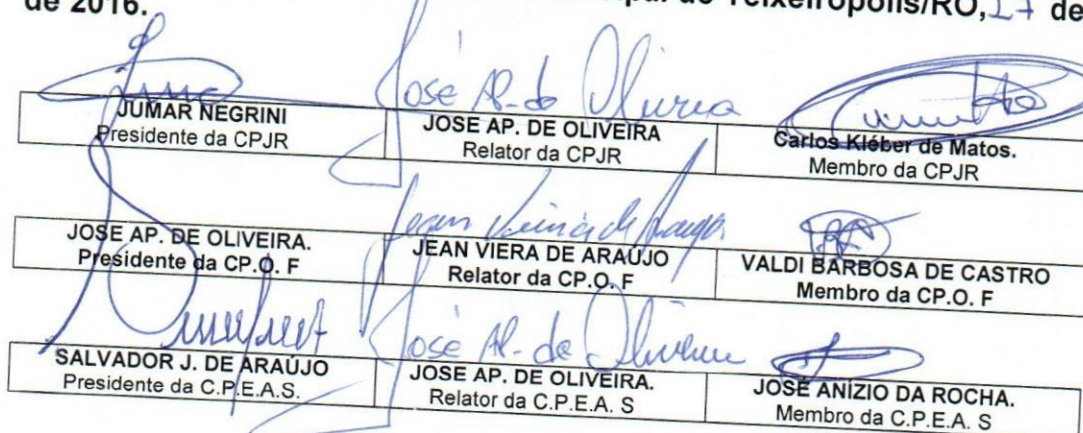 Teixeirópolis/RO, 27 de
de 2016.
José Ap. de Oliveira
JUMAR NEGRINI
Presidente da CPJR
JOSE AP. DE OLIVEIRA
Relator da CPJR
Carlos Kléber de Matos.
Membro da CPJR
Jean Vieira de Araujo
JOSE AP. DE OLIVEIRA.
Presidente da CP.O. F
JEAN VIERA DE ARAÚJO
Relator da CP.O. F
VALDI BARBOSA DE CASTRO
Membro da CP.O. F
José Ap. de Oliveira
SALVADOR J. DE ARAÚJO
Presidente da C.P.E.A.S.
JOSE AP. DE OLIVEIRA.
Relator da C.P.E.A. S
JOSÉ ANÍZIO DA ROCHA.
Membro da C.P.E.A. S